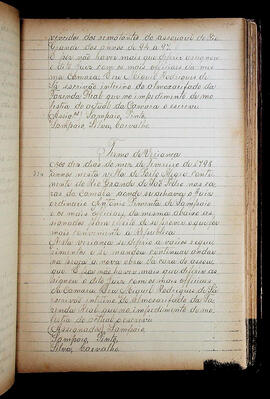 vencidos dos rematantes do assougue do Rio
Grande dos annos de 94 a 97.
E por não haver mais que deferir assignou
o dito Juiz com os mais officiaes da mes
ma Camara; Eu Miguel Rodrigues de
Sá escrivão interino do almoxarifado da
Fazenda Real que no impedimento de mo
lestia do actual da Camara o escrevi
Assig.os Sampaio, Pinto,
Sampaio Silva, Carvalho.
Termo de Vereança
Aos dez dias do mez de fevereiro de 1798
annos nesta villa de Porto Alegre conti
nente do Rio Grande de São Pedro nas ca
zas da Camara, donde se achava o Juiz
ordinario Antonio Pimenta de Sampaio
e os mais officiaes da mesma abaixo as
signados para effeito de se prover o que fos
se mais conveniente a Republica
Nesta vereança se deferio a varios reque
rimentos e se mandou continuar
a nova obra da caza do assou
gue. E por não haver mais que deferir as
signou o dito Juiz com os mais officiaes
da Camara. Eu Miguel Rodrigues de Sá
escrivão interino do Almoxarifado da Fa
zenda Real que no impedimento de mo
lestia do actual o escrevi
Assignados, Sampaio,
Sampaio, Pinto,
Silva, Carvalho